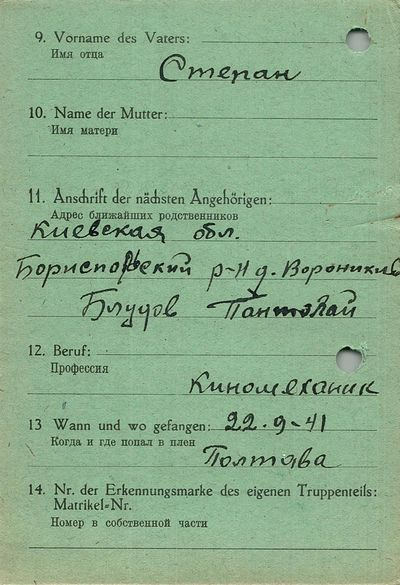 9. Vorname des Vaters:
Имя отца
Степан
10. Name der Mutter:
Имя матери
11. Anschrift der nächsten Angehörigen:
Адрес ближайших родственников
Киевская обл.
Бориспольский р-н д. Вороникив
Блудов Пантолай
12. Beruf:
Профессия
Киномеханик
13 Wann und wo gefangen: 22.9-41
Когда и где попал в плен
Полтава
14. Nr. der Erkennungsmarke des eigenen Truppenteils:
Matrikel-Nr.
Номер в собственной части